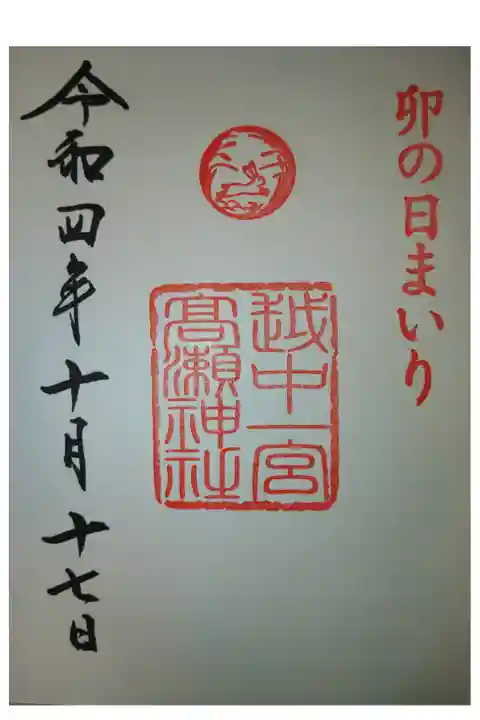 卯の日まいり
越中一宮
高瀬神社
令和四年十月十七日